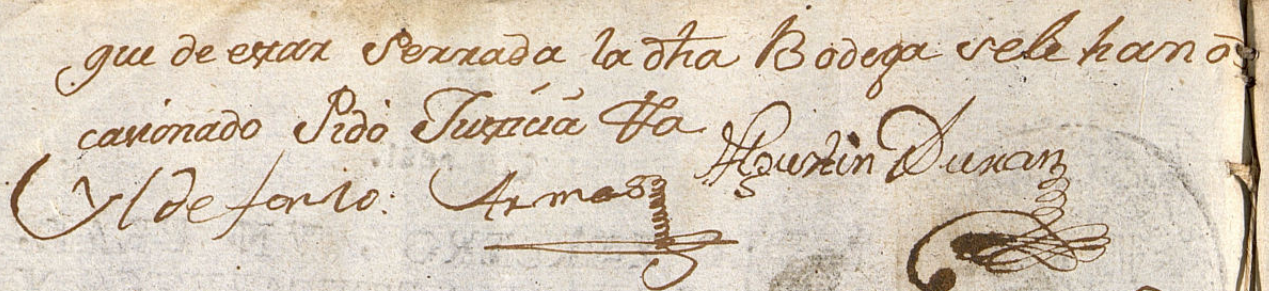 que de estar Serrada la dha Bodega sele han o
casionado Pido Justicia Va
Agustin Duran
Yldefonso Armas